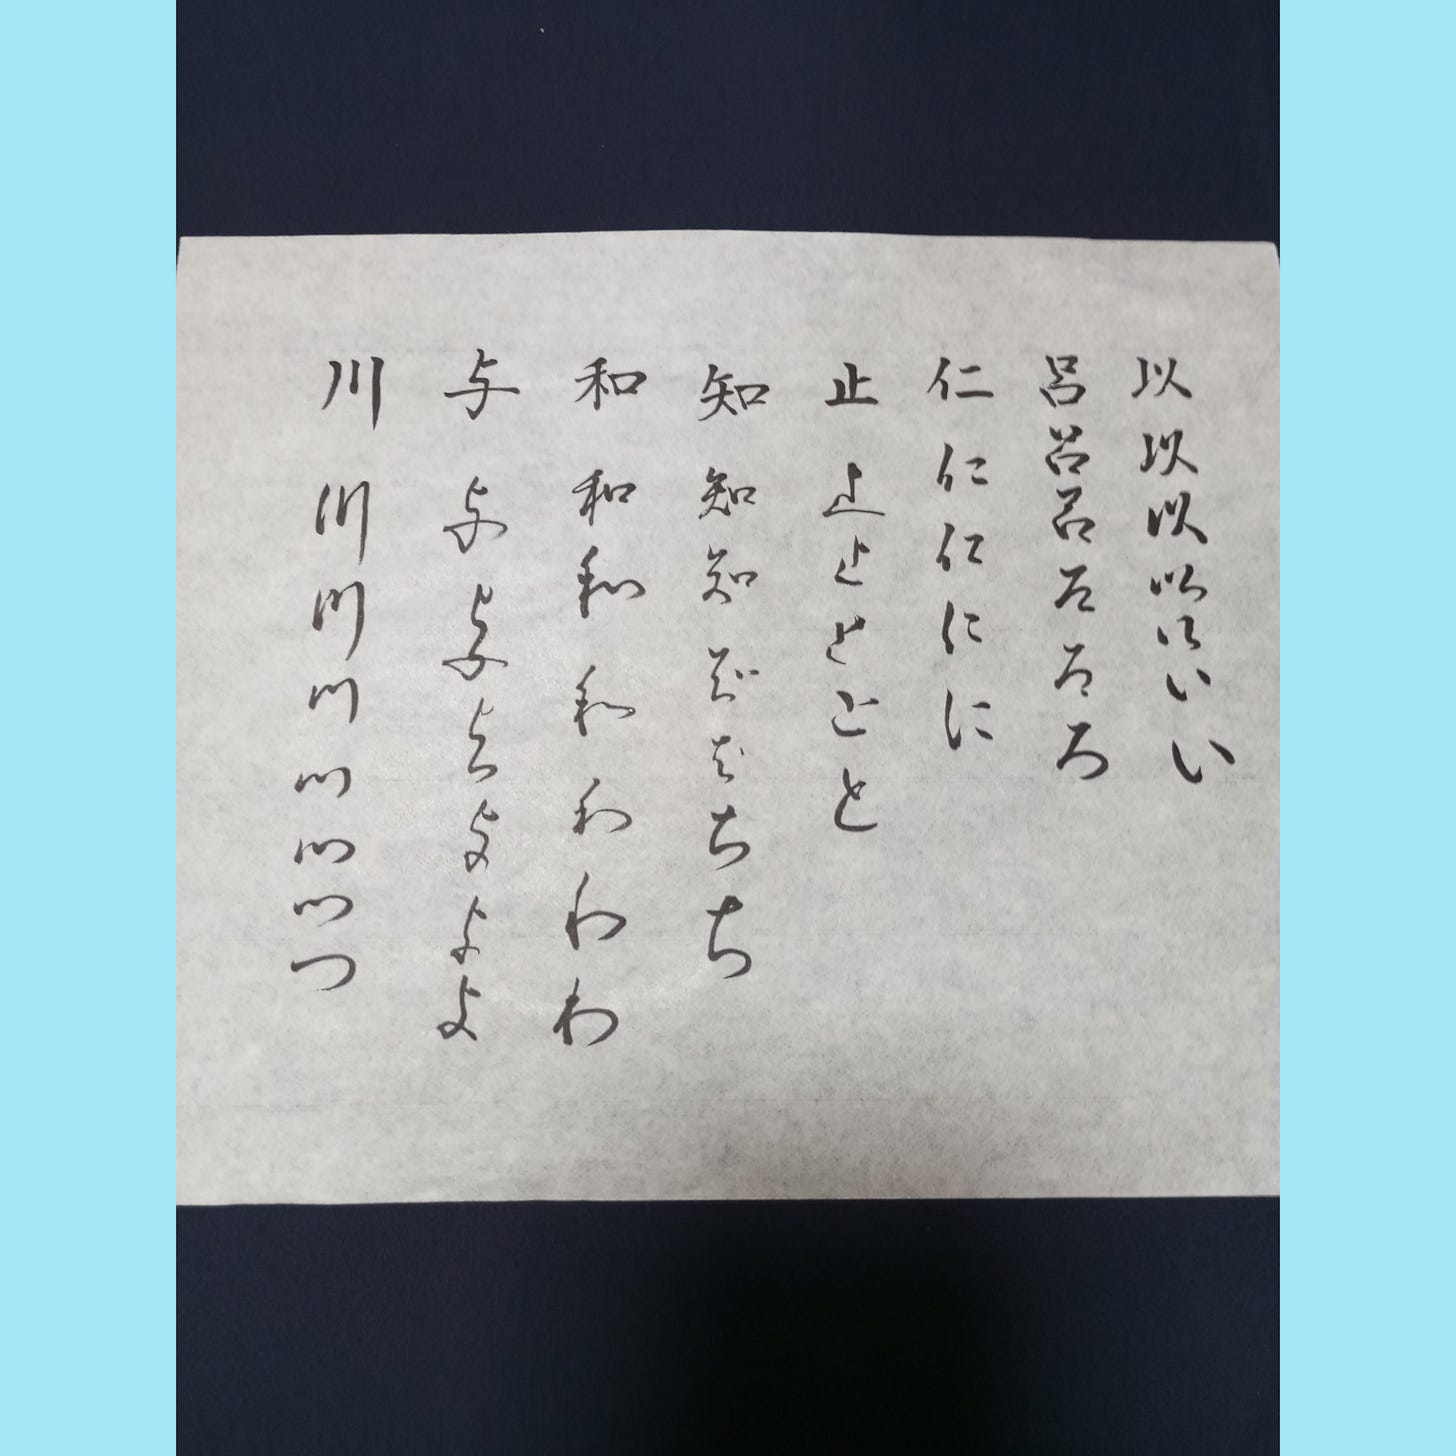 以以以以以いい
呂呂呂ろろろ
仁仁仁にに
止止止とと と
知知知知ちちち
和和和和わわわ
与与与与よよよ
川川川川川つつつ